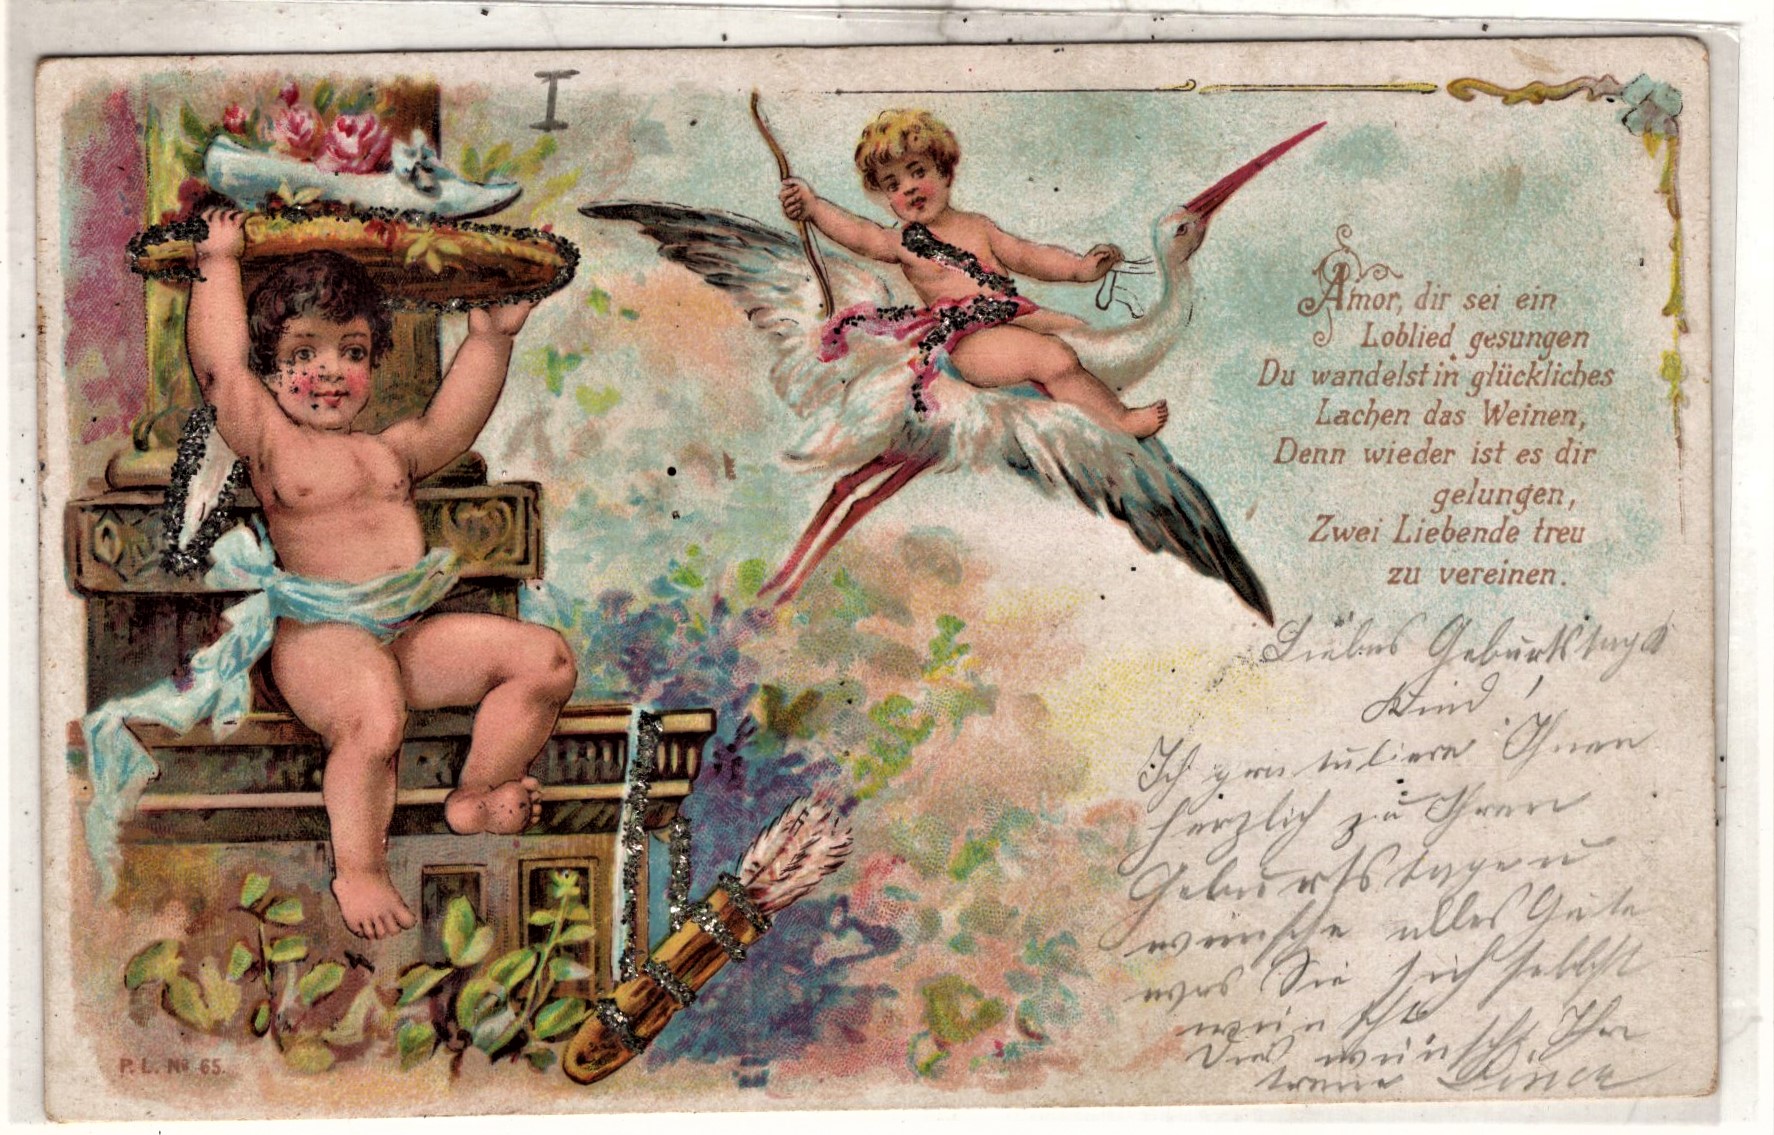 I
Amor, dir sei ein
Loblied gesungen
Du wandelst in glückliches
Lachen das Weinen,
Denn wieder ist es dir
gelungen,
Zwei Liebende treu
zu vereinen.
Liebes Geburtstags
Kind!
Ich gratuliere Ihnen
herzlich zu Ihren
Geburtstage u
wünsche alles Gute
was Sie sich selbst
wünscht
Dies wünscht Ihr
treuer
P. L. Nº 65.